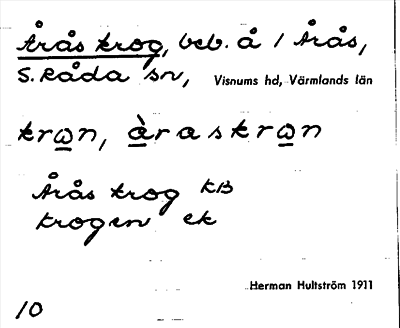 Årås krog, beb. å 1 Årås,
S. Råda sn, Visnums hd, Värmlands län
krɷn, àraskrɷn
Årås krog KB
krogen ek
Herman Hultström 1911
10